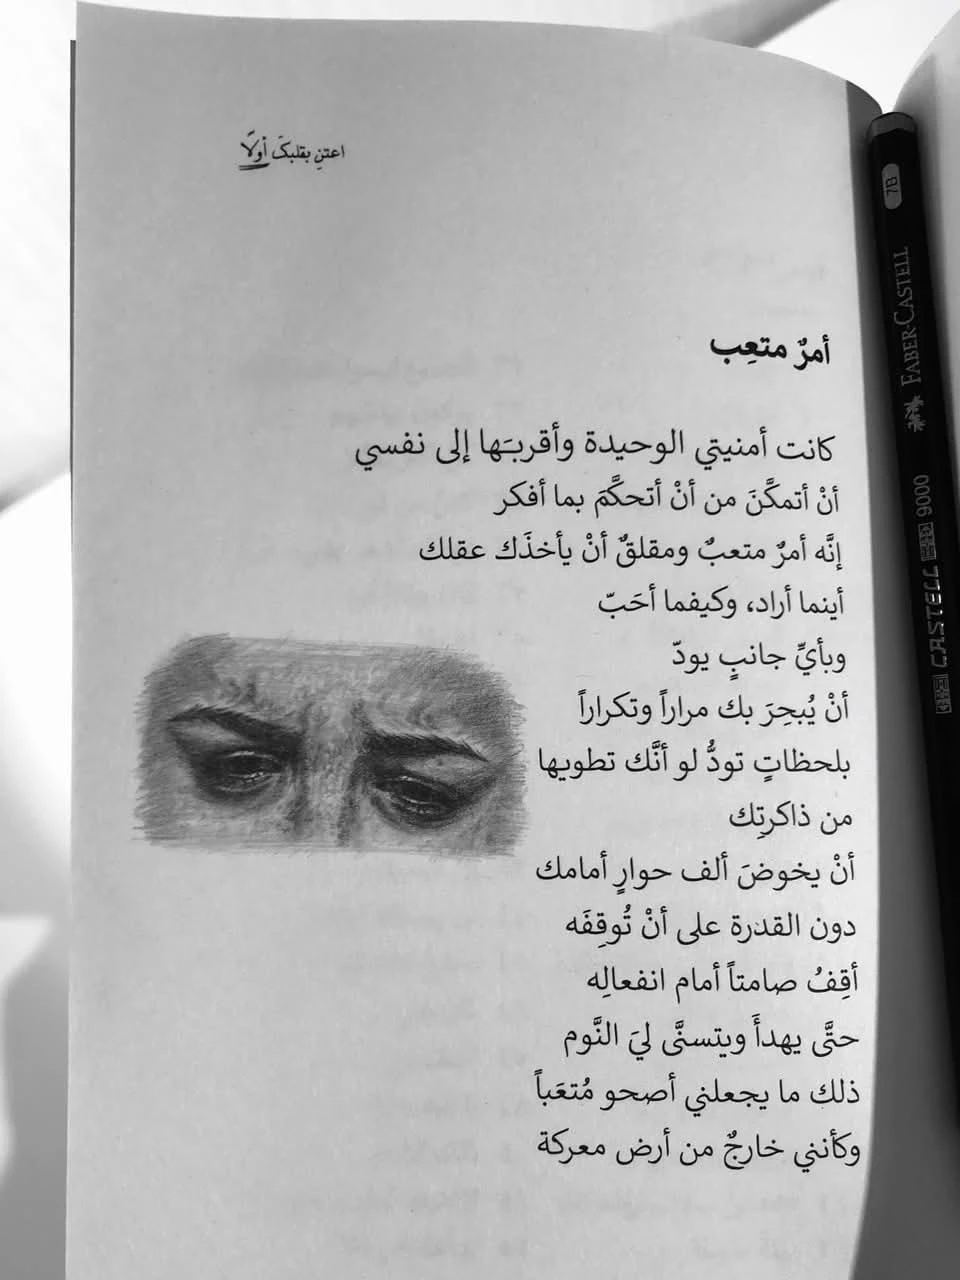 اعتنِ بقلبكَ أولًا
أمرٌ متعِب
كانت أمنيتي الوحيدة وأقربـَها إلى نفسي
أنْ أتمكَّنَ من أنْ أتحكَّمَ بما أفكر
إنَّه أمرٌ متعبٌ ومقلقٌ أنْ يأخذَك عقلك
أينما أراد، وكيفما أحَبّ
وبأيِّ جانبٍ يودّ
أنْ يُبحِرَ بك مراراً وتكراراً
بلحظاتٍ تودُّ لو أنَّك تطويها
من ذاكرتِك
أنْ يخوضَ ألف حوارٍ أمامك
دون القدرة على أنْ تُوقِفَه
أقِفُ صامتاً أمام انفعالِه
حتَّى يهدأَ ويتسنَّى ليَ النَّوم
ذلك ما يجعلني أصحو مُتعَباً
وكأنني خارجٌ من أرض معركة
7B
FABER-CASTELL
CASTELL 9000